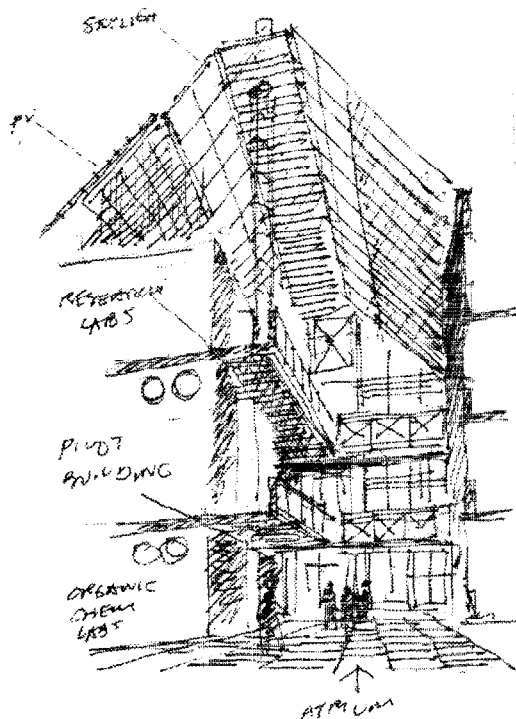 SKYLIGHT
PV
RESEARCH
LABS
PIVOT
BUILDING
ORGANIC
CHEM
LABS
ATRIUM